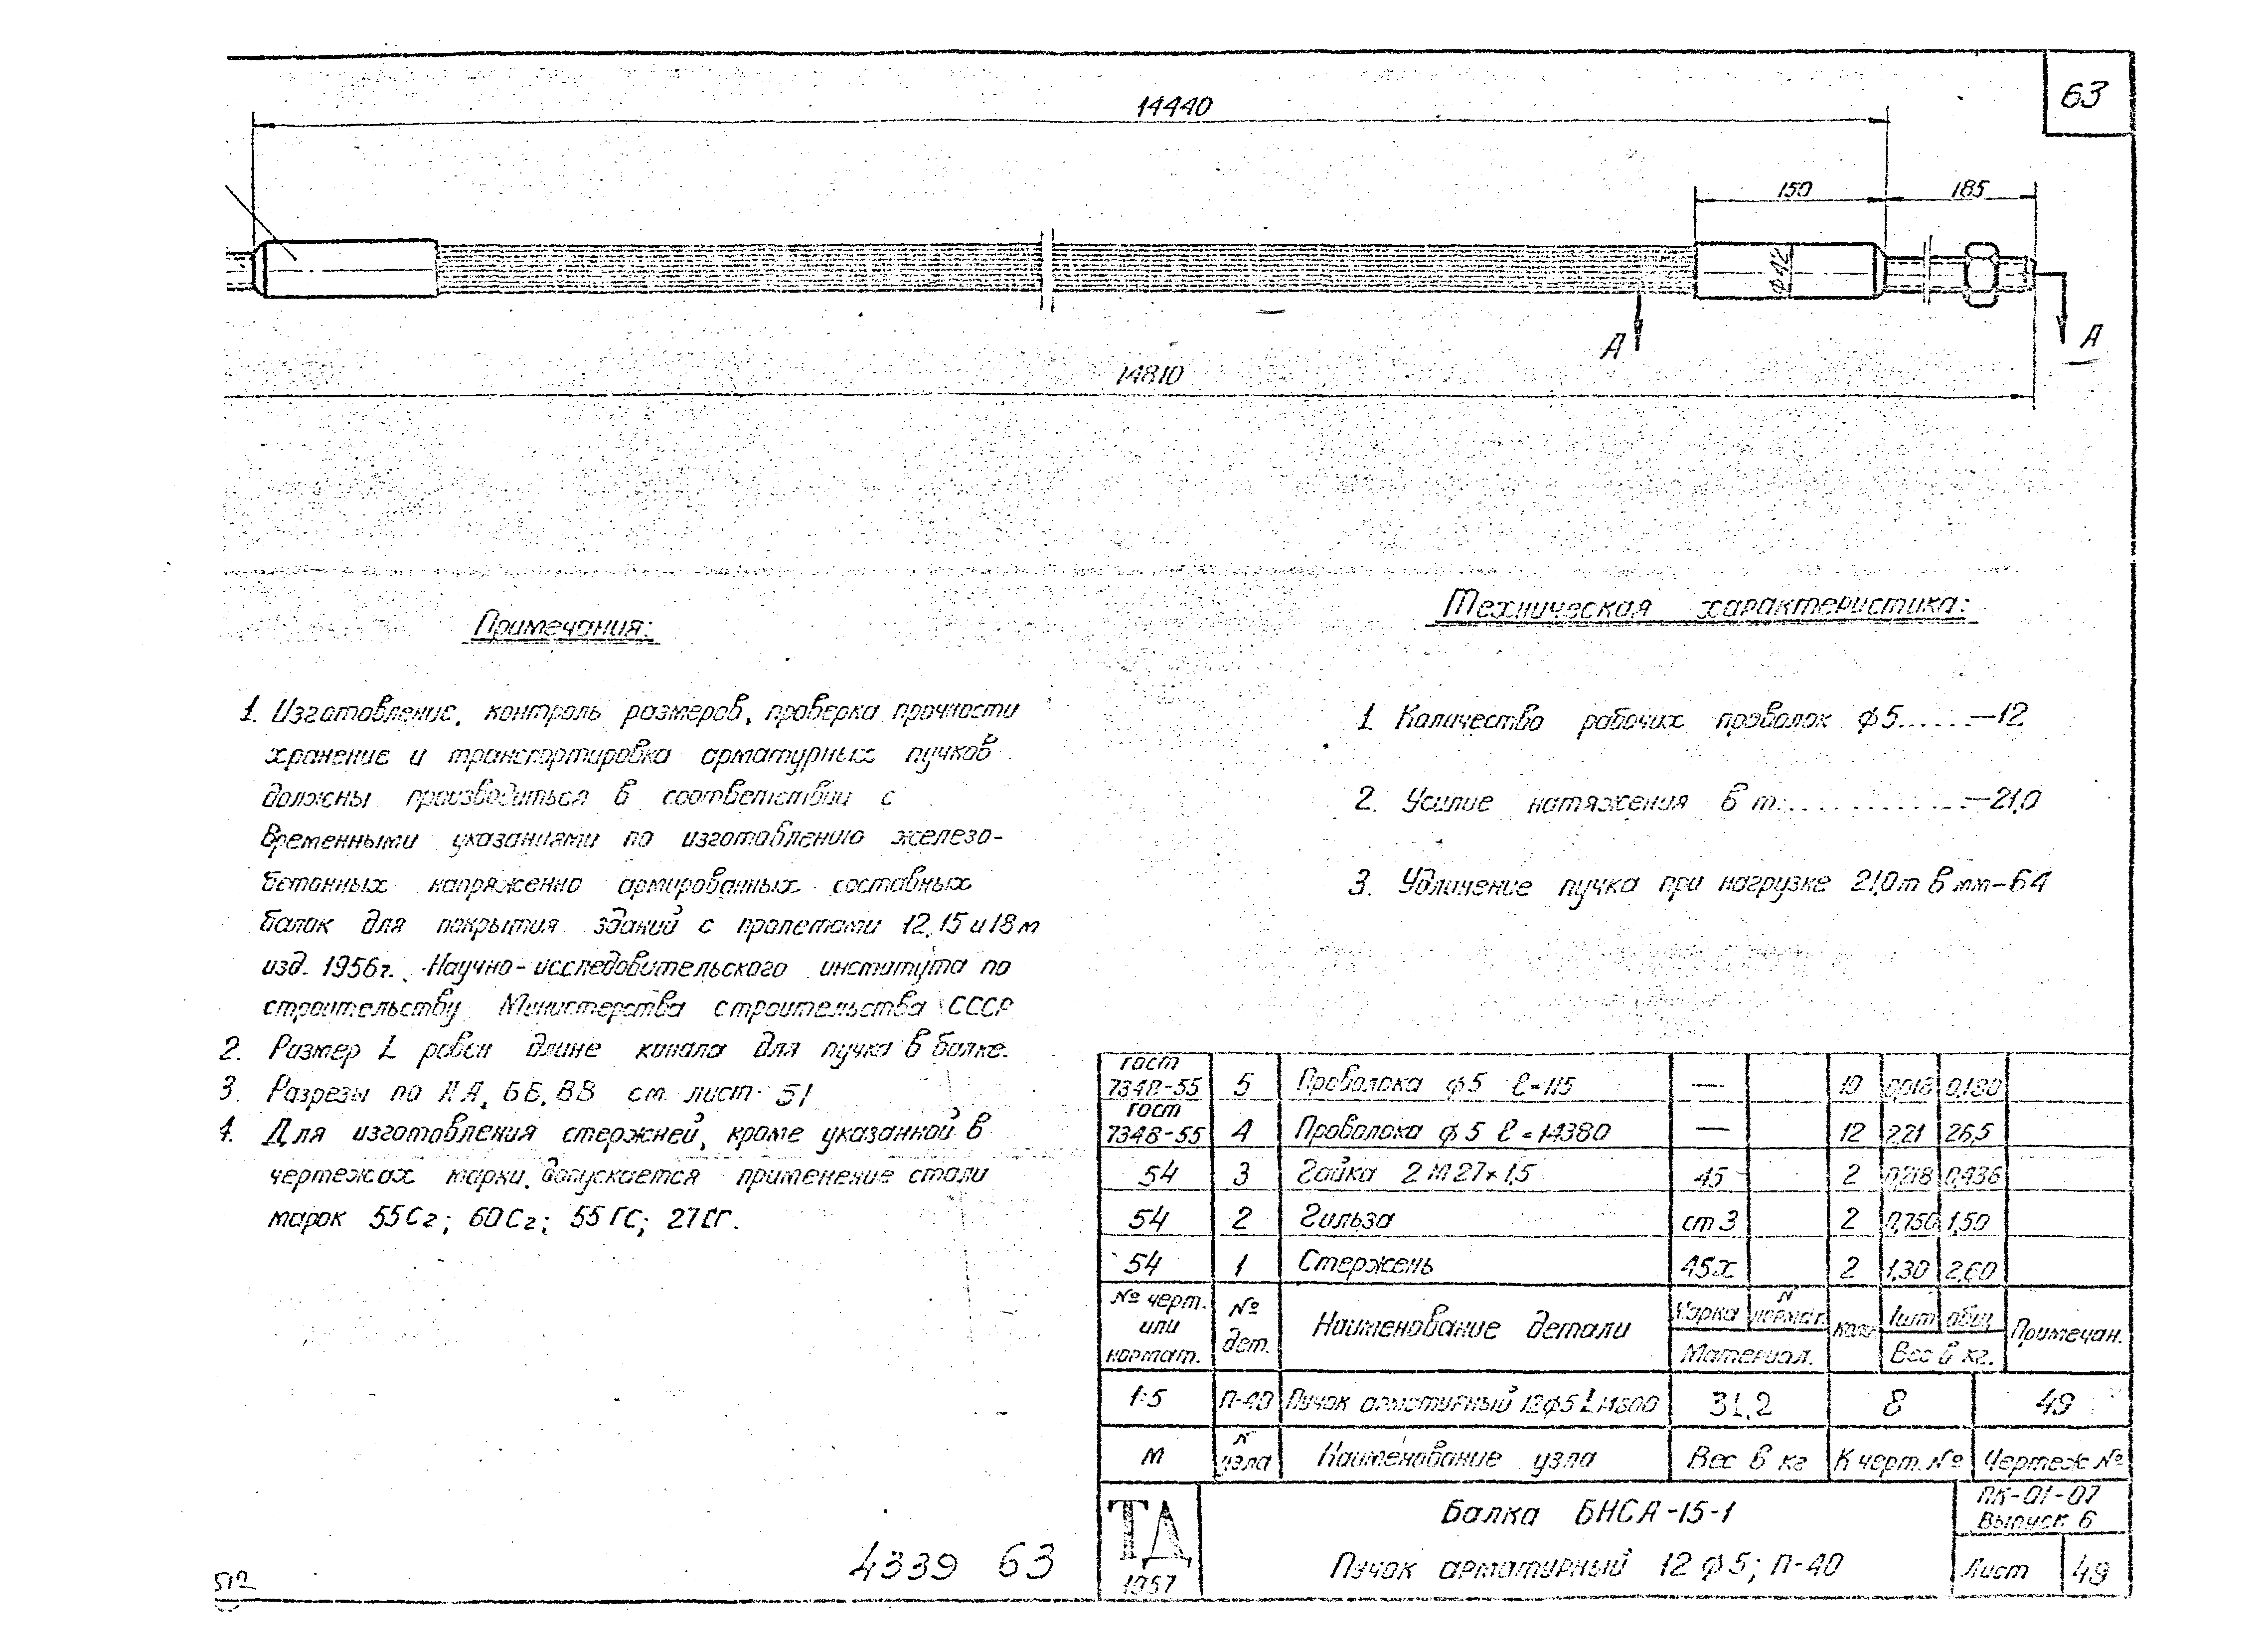 63
14440
150
185
Ф42
А
А
14810
Примечания:
1. Изготовление, контроль размеров, проверка прочности
хранение и транспортировка арматурных пучков
должны производиться в соответствии с
Временными указаниями по изготовлению железо-
бетонных напряженно армированных составных
балок для покрытия зданий с пролетами 12, 15 и 18 м
изд. 1956г. Научно-исследовательского института по
строительству Министерства строительства СССР
2. Размер L равен длине канала для пучка в балке.
3. Разрезы по АА, ББ, ВВ см. лист 51
4. Для изготовления стержней, кроме указанной в
чертежах марки, допускается применение стали
марок 55Сг; 60Сг; 55ГС; 27СГ.
Техническая характеристика:
1. Количество рабочих проволок ф5......—12
2. Усилие натяжения в т..............—21,0
3. Удлинение пучка при нагрузке 21,0т в мм-64
гост 7348-55 5 Проволока ф5 ℓ=115 — 10 0,018 0,180
гост 7348-55 4 Проволока ф5 ℓ=14380 — 12 2,21 26,5
54 3 Гайка 2М27×1,5 45 2 0,218 0,436
54 2 Гильза ст3 2 0,750 1,50
54 1 Стержень 45х 2 1,30 2,60
№ черт. или нормат. № дет. Наименование детали Марка N нормат. Колич. 1шт общ. Примечан.
Материал. Вес в кг.
1:5 П-40 Пучок арматурный 12ф5 31.2 8 49
М N узла Наименование узла Вес в кг К черт. № Чертеж №
ТД
1957
Балка БНСА-15-1
Пучок арматурный 12 ф 5; П-40
ПК-01-07
Выпуск 6
Лист 49
4339 63
512